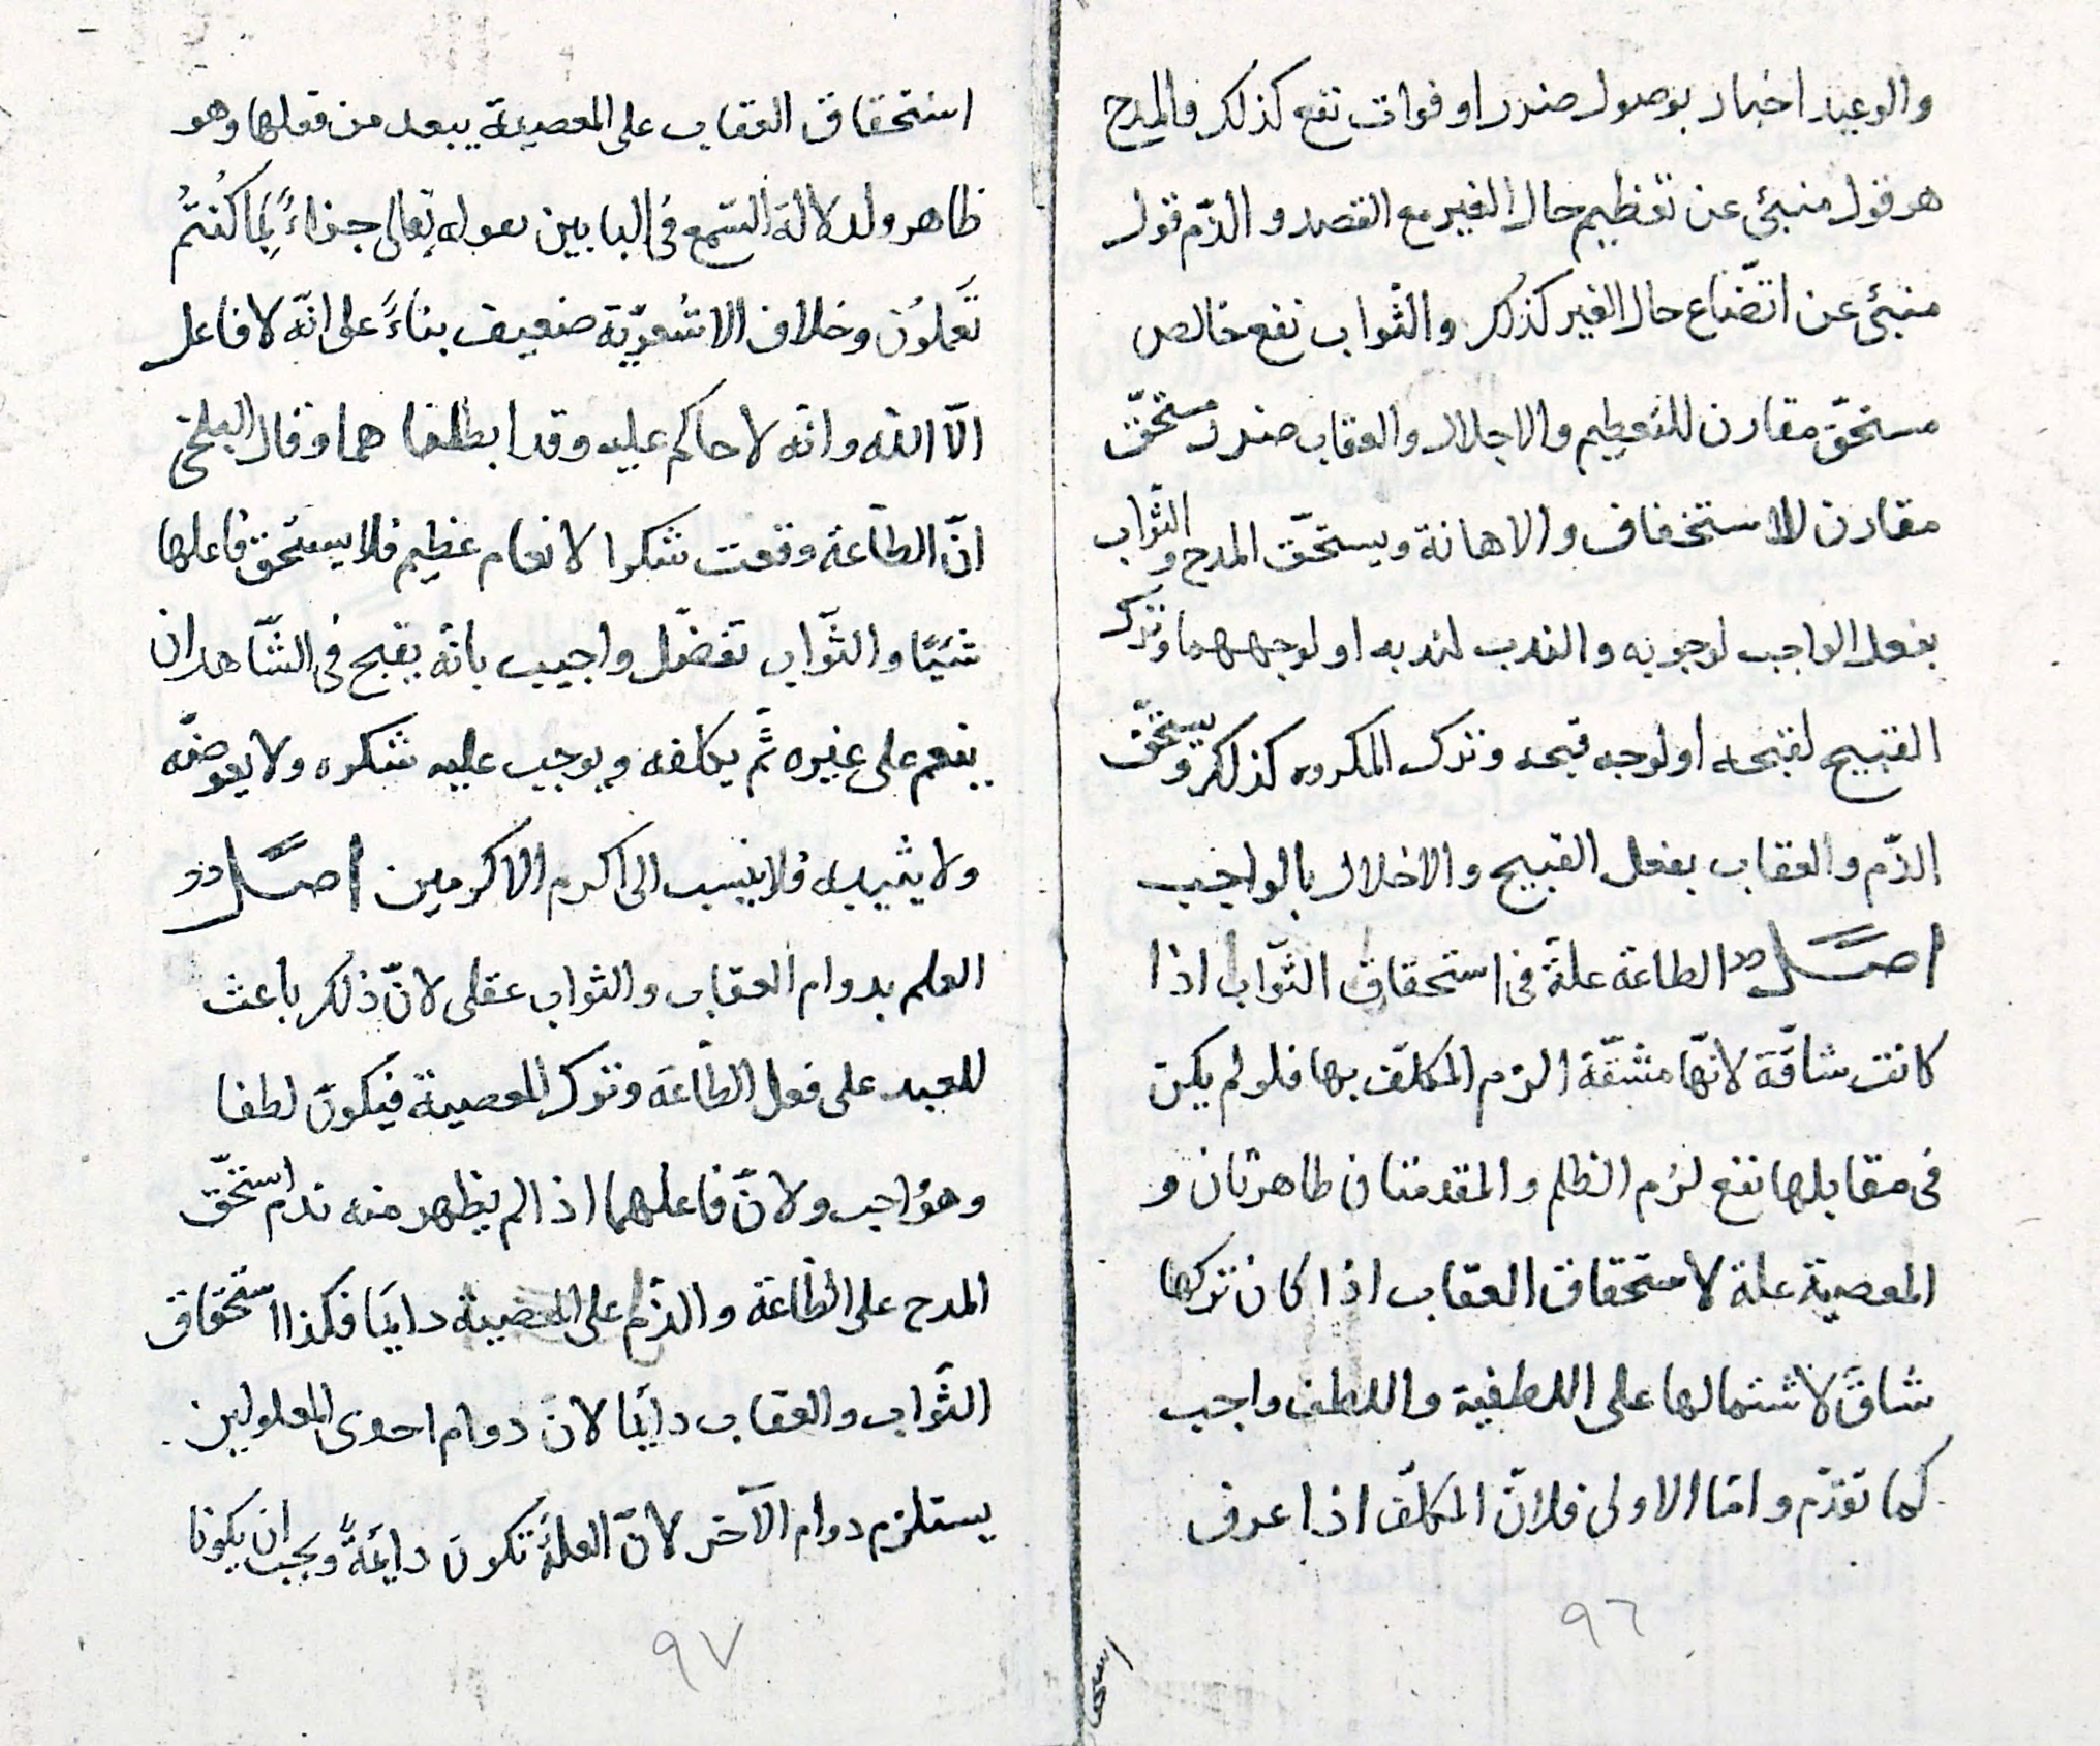 والوعيد اخبار بوصول ضرر او فوات نفع كذلك والمدح
هو قول منبئ عن تعظيم حال الغير مع القصد و الذّم قول
منبئ عن اتّضاع حال الغير كذلك والثّواب نفع خالص
مستحقّ مقارن للتعظيم والاجلال والعقاب ضرر مستحقّ
مقارن للاستخفاف والاهانة ويستحقّ المدح والثّواب
بفعل الواجب لوجوبه والندب لندبه او لوجههما وترك
القبيح لقبحه او لوجه قبحه وترك المكروه كذلك ويستحقّ
الذّم والعقاب بفعل القبيح والاخلال بالواجب
اصــل الطاعة علة فى استحقاق الثّواب اذا
كانت شاقّة لانّها مشقّة الزم المكلّف بها فلو لم يكن
فى مقابلها نفع لزم الظلم والمقدمتان ظاهرتان و
المعصية علة لاستحقاق العقاب اذا كان تركها
شاقّ لاشتمالها على اللطفية واللطف واجب
كما تقدّم وامّا الاولى فلانّ المكلّف اذا عرف
٩٦
استحقاق العقاب على المعصية يبعد من فعلها وهو
ظاهر ولدلالة السّمع فى البابين بقوله تعالى جزاءً بِما كُنتُم
تَعملون وخلاف الاشعريّة ضعيف بناءً على انّه لا فاعل
الّا الله وانّه لا حاكم عليه وقد ابطلناهما وقال البلخى
انّ الطّاعة وقعت شكرا لانعام عظيم فلا يستحق فاعلها
شيئًا والثّواب تفضّل واجيب بانّه يقبح فى الشّاهد ان
ينعم على غيره ثمّ يكلفه ويوجب عليه شكره ولا يعوضه
ولا يثيبه فلا ينسب الى اكرم الاكرمين اصــل
العلم بدوام العقاب والثواب عقلى لانّ ذلك باعث
للعبد على فعل الطّاعة وترك المعصية فيكون لطفا
وهو واجب ولانّ فاعلهما اذا لم يظهر منه ندم استحقّ
المدح على الطّاعة والذّم على المعصية دايما فكذا استحقاق
الثّواب والعقاب دايما لانّ دوام احدى المعلولين
يستلزم دوام الآخر لانّ العلّة تكون دايمةً ويجب ان يكونا
٩٧